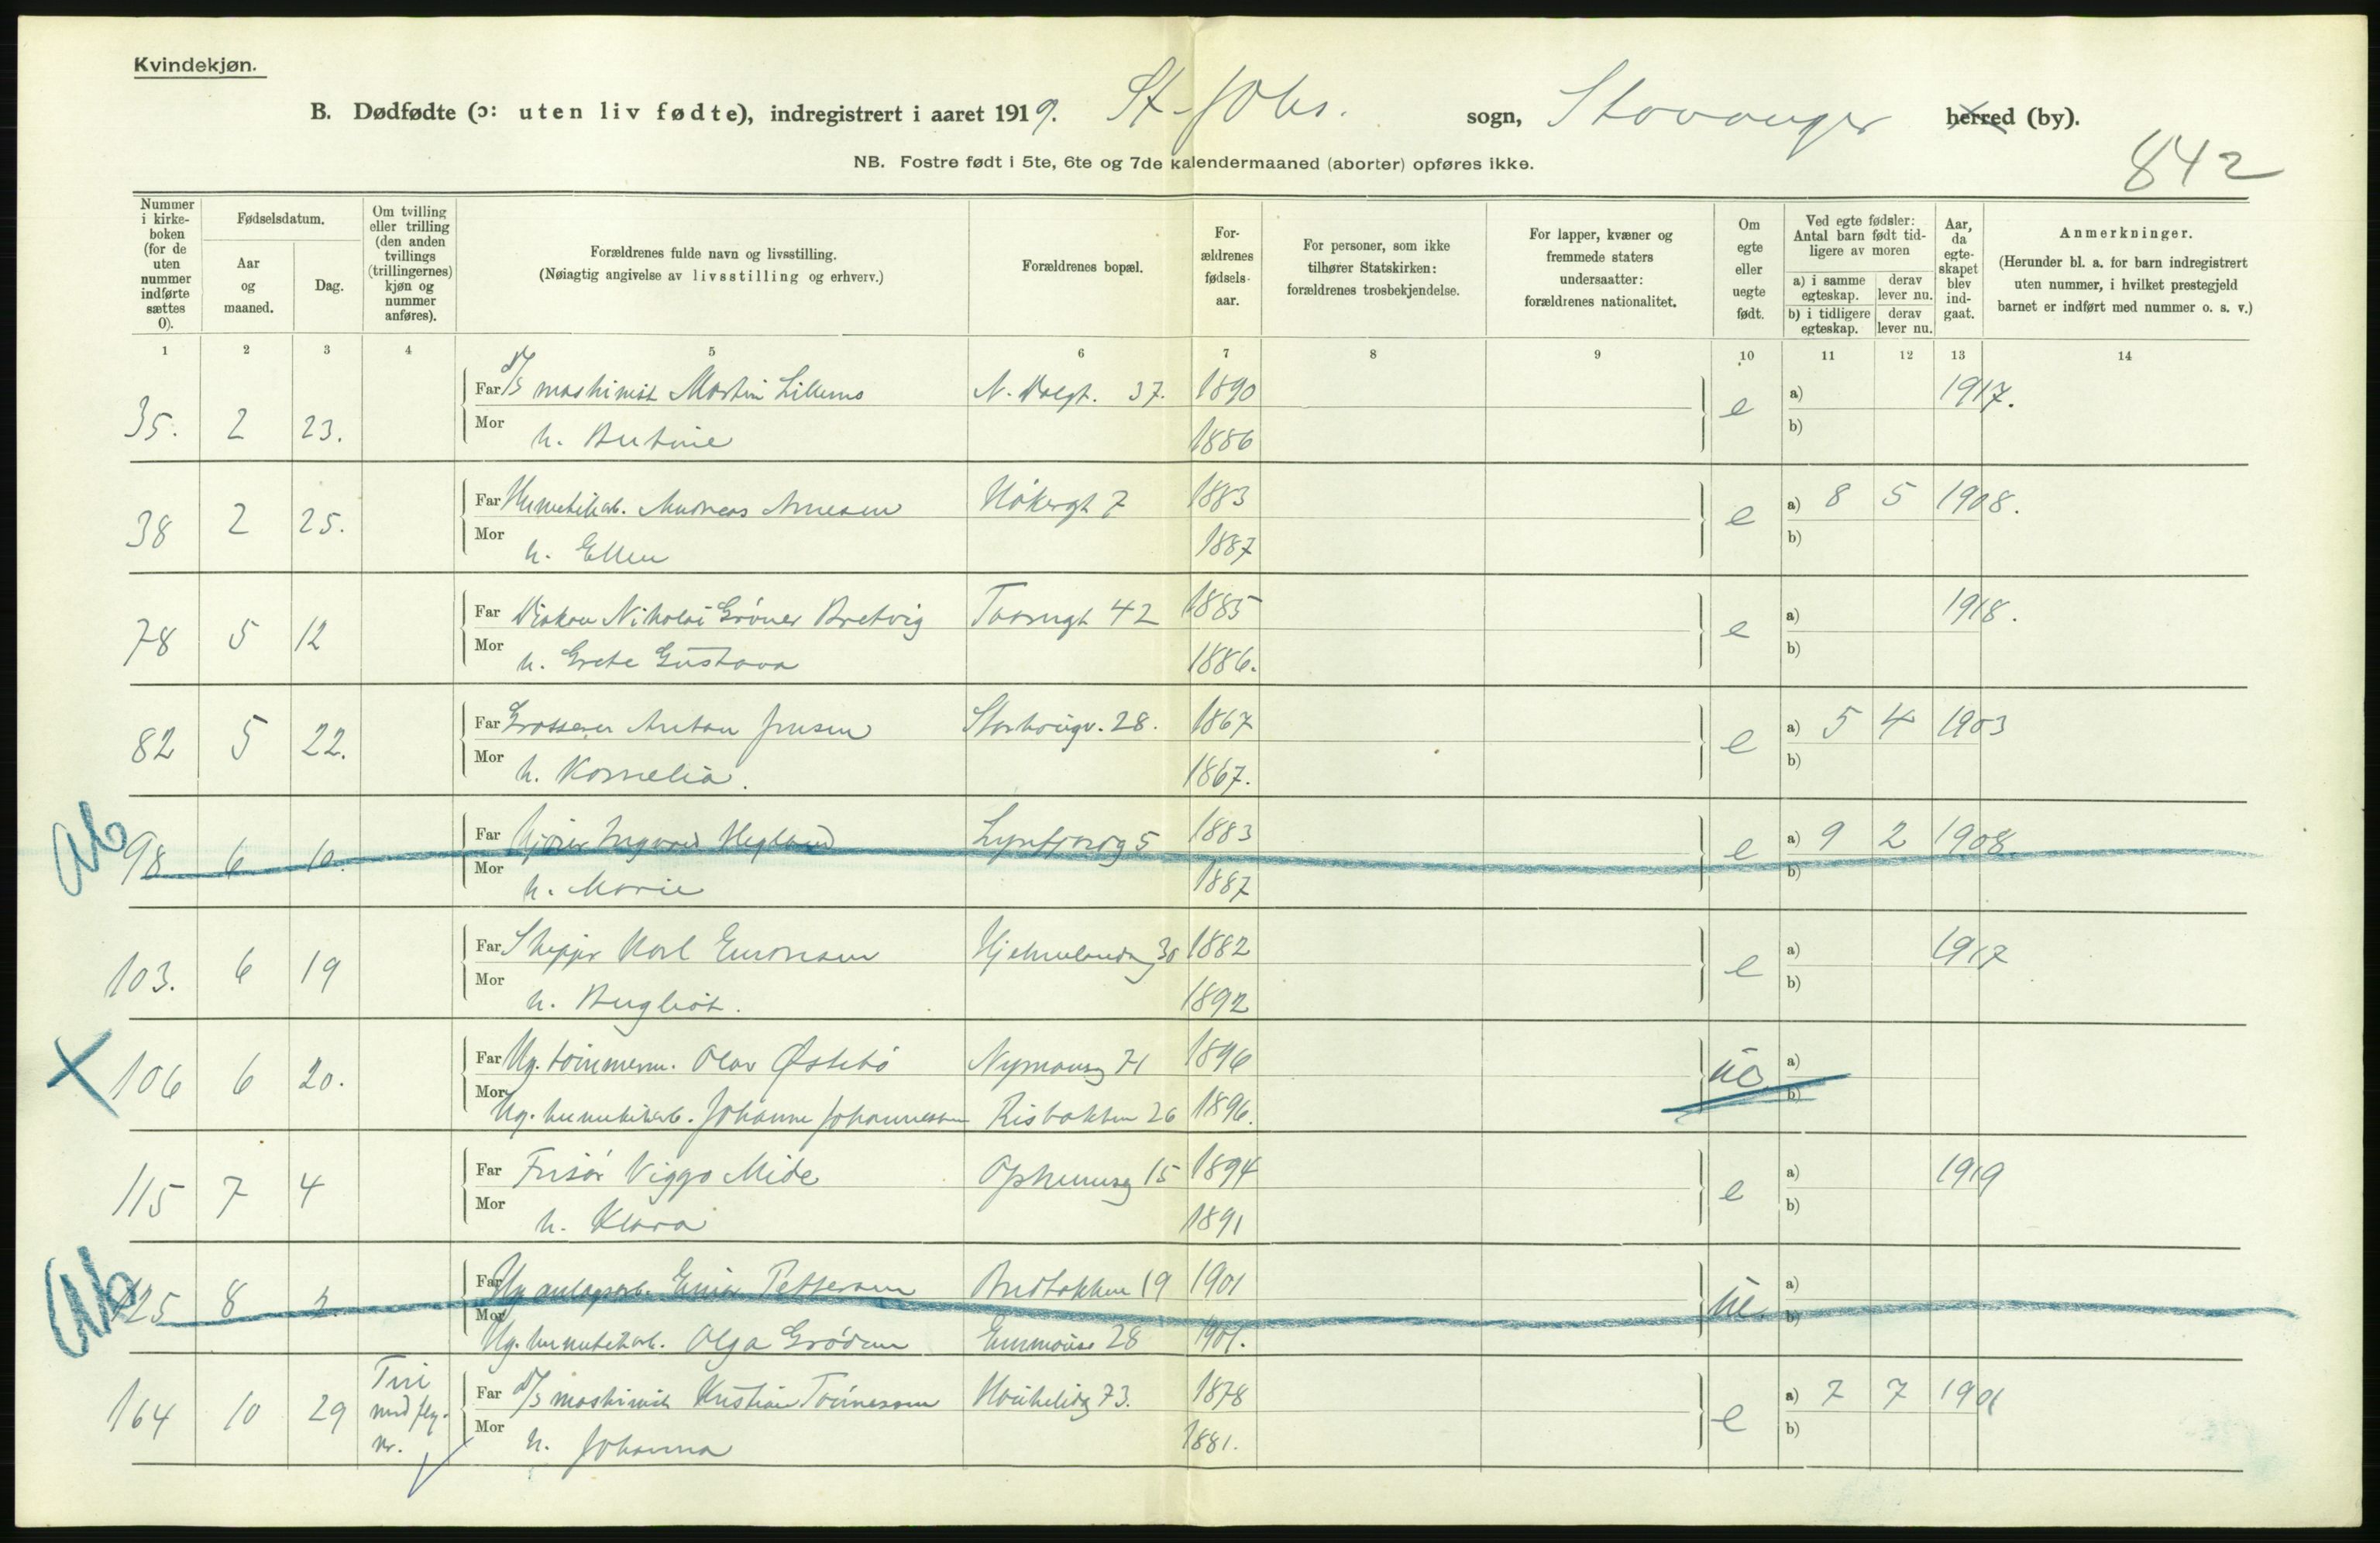 Kvindekjøn.
B. Dødfødte (ɔ: uten liv fødte), indregistrert i aaret 1919. St. Johs. sogn, Stavanger herred (by).
842
NB. Fostre født i 5te, 6te og 7de kalendermaaned (aborter) opføres ikke.
Nummer i kirke-boken (for de uten nummer indførte sættes 0).
Fødselsdatum.
Aar og maaned.
Dag.
Om tvilling eller trilling (den anden tvillings (trillingernes) kjøn og nummer anføres).
Forældrenes fulde navn og livsstilling.
(Nøiagtig angivelse av livsstilling og erhverv.)
Forældrenes bopæl.
For-ældrenes fødsels-aar.
For personer, som ikke tilhører Statskirken: forældrenes trosbekjendelse.
For lapper, kvæner og fremmede staters undersaatter: forældrenes nationalitet.
Om egte eller uegte født.
Ved egte fødsler: Antal barn født tid-ligere av moren
a) i samme egteskap. derav lever nu.
b) i tidligere egteskap. derav lever nu.
Aar, da egte-skapet blev ind-gaat.
Anmerkninger.
(Herunder bl. a. for barn indregistrert uten nummer, i hvilket prestegjeld barnet er indført med nummer o. s. v.)
1 2 3 4 5 6 7 8 9 10 11 12 13 14
35. 2 23. Far D/S maskinist Martin 37. 1890 e a) 1917.
Mor h. 1886 b)
38 2 25. Far Andreas Arnesen 7 1883 e a) 8 5 1908.
Mor h. Ellen 1887 b)
78 5 12 Far Diakon Nikolai Gröner Bretvig 42 1885 e a) 1918.
Mor h. Grete Gustava 1886. b)
82 5 22. Far Grosserer Anton Jensen Storhougv. 28. 1867 e a) 5 4 1903
Mor h. Kornelia. 1867. b)
Ab 98 6 10. Far Ingvald Hegland 5 1883 e a) 9 2 1908.
Mor h. Marie 1887 b)
103. 6 19 Far Skipper Karl 30 1882 e a) 1917
Mor h. 1892 b)
X 106 6 20. Far Ug. tömmerm. Olav Østebö Nymansg 71 1896 ue a)
Mor Ug. hermetikarb. Johanne Johannessen Risbakken 26 1896. b)
115 7 4 Far Frisör Viggo Mide 15 1894 e a) 1919
Mor h. Klara 1891 b)
Ab 125 8 2. Far Ug. Einar Pettersen 19 1901 ue. a)
Mor Ug. hermetikarb. Olga Grödem Emmause 28 1901. b)
164 10 29 Tvil med flg. nr. Far D/S maskinist Kristian Tönnesen 73. 1878 e a) 7 7 1901
Mor h. Johanna 1881. b)